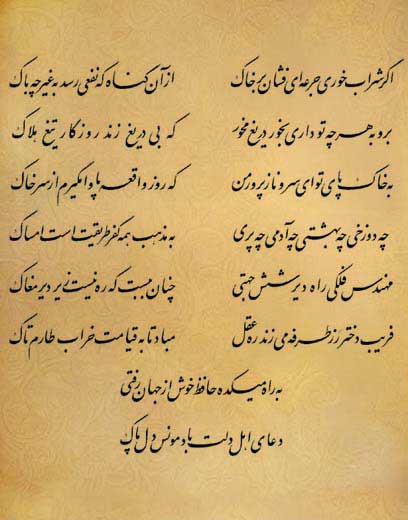 اگر شراب خوری جرعه‌ای فشان بر خاک از آن گناه که نفعی رسد به غیر چه باک
برو به هر چه تو داری بخور دریغ مخور که بی دریغ زند روزگار تیغ هلاک
به خاک پای تو ای سرو ناز پرور من که روز واقعه پا وامگیرم از سر خاک
چه دوزخی چه بهشتی چه آدمی چه پری به مذهب همه کفر طریقت است امساک
مهندس فلکی راه دیر شش جهتی چنان ببست که ره نیست زیر دیر مغاک
فریب دختر رز طرفه می زند ره عقل مباد تا به قیامت خراب طارم تاک
به راه میکده حافظ خوش از جهان رفتی
دعای اهل دلت باد مونس دل پاک